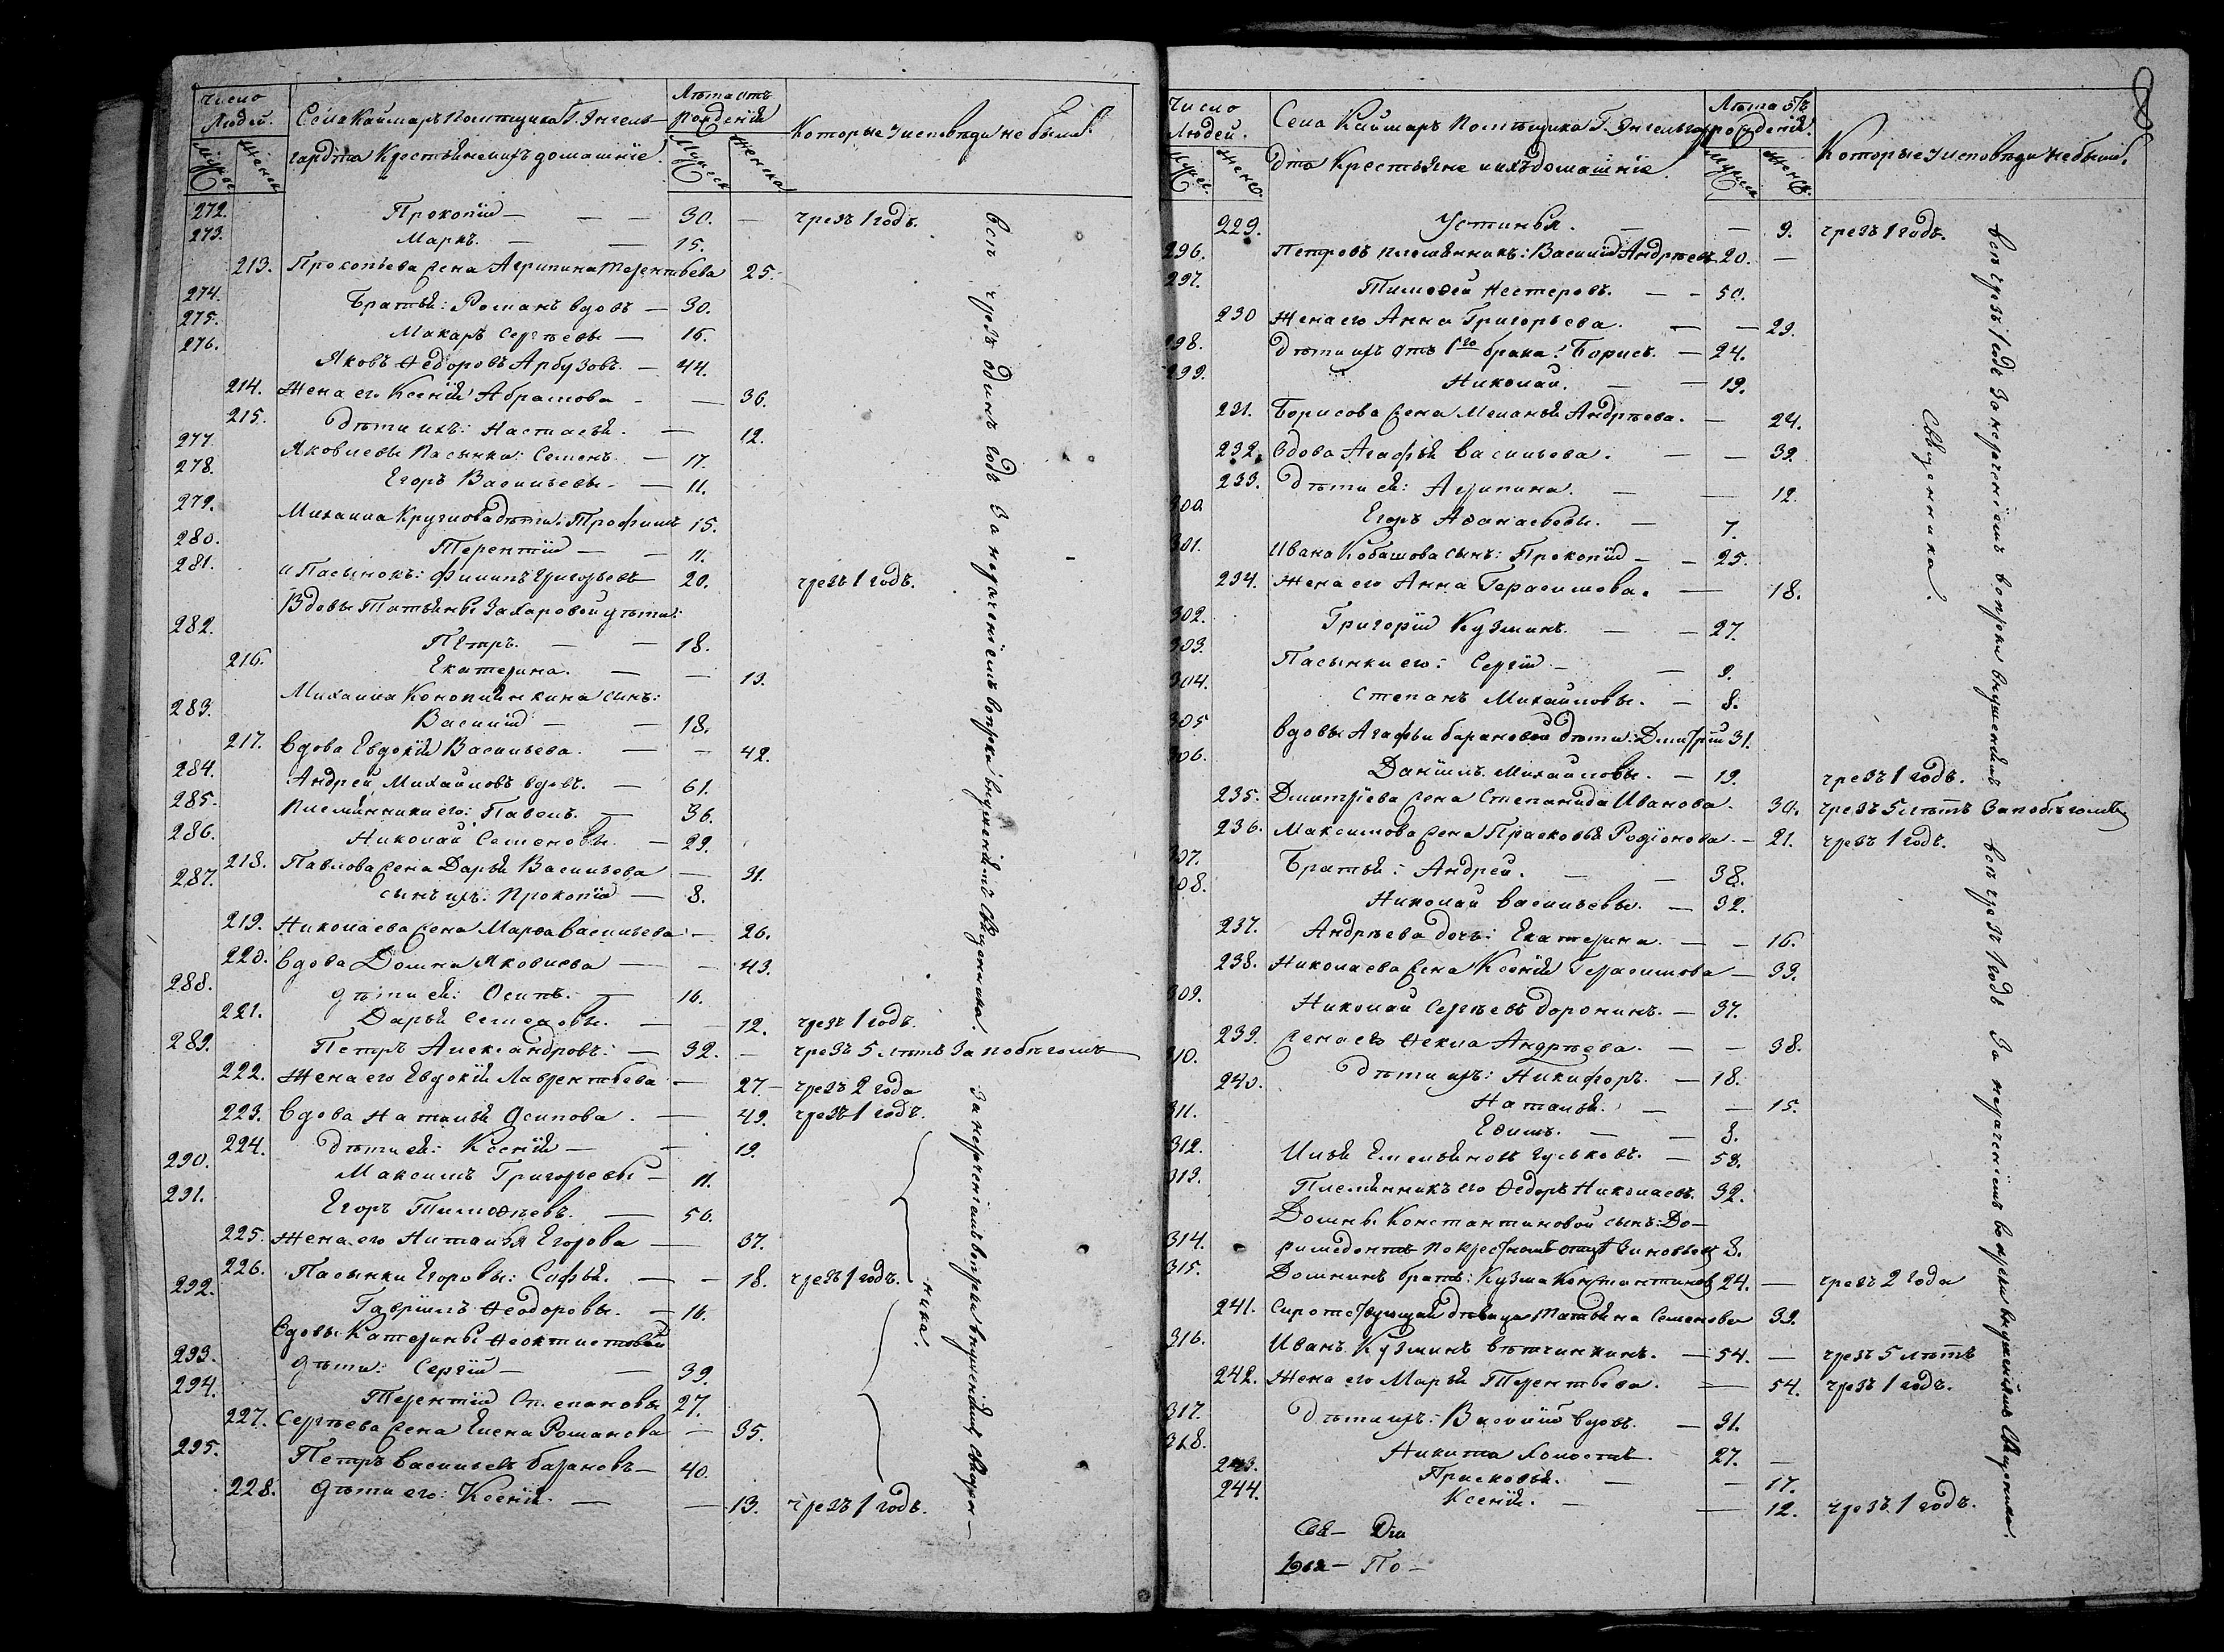 Число Людей.
Села Каймаръ Помѣщика Г. Энгель-
гардта Крестьяне и ихъ домашніе.
Лѣта отъ рожденія
Которые у исповѣди не были.
Мужес Женск
Мужеск Женска
272. Прокопій — 30. — чрезъ 1 годъ.
273. Маркъ. — 15.
213. Прокопьева жена Агрипина Терентьева 25.
274. Братья: Романъ вдовъ — 30.
275. Макаръ Сергѣевы — 16.
276. Яковъ Ѳедоровъ Арбузовъ. — 44.
214. Жена его Ксенія Абрамова — 36.
215. Дѣти ихъ: Настасья. — 12.
277. Яковлевы пасынки: Семенъ — 17.
278. Егоръ Васильевы. — 11.
279. Михаила Круглова дѣти: Трофимъ 15.
280. Терентій — 11.
281. и Пасынокъ: Филипъ Григорьевъ 20. чрезъ 1 годъ.
Вдовы Татьяны Захаровой дѣти:
282. Петръ. — 18.
216. Екатерина. — 13.
Михаила Конопляпкина сынъ:
283. Василій — 18.
217. Вдова Евдокія Васильева. — 42.
284. Андрей Михайловъ вдовъ. — 61.
285. Племянники его: Павелъ. — 36.
286. Николай Семеновы. — 29.
218. Павлова жена Дарья Васильева — 31.
287. сынъ ихъ: Прокопій — 8.
219. Николаева жена Марѳа Васильева — 26.
220. Вдова Домна Яковлева — 43.
288. дѣти ея: Осипъ. — 16.
221. Дарья Семеновы. — 12. чрезъ 1 годъ.
289. Петръ Александровъ. — 32. — чрезъ 5 лѣтъ За побѣгомъ
222. Жена его Евдокія Лаврентьева — 27 — чрезъ 2 года
223. Вдова Наталья Осипова. — 49. чрезъ 1 годъ.
224. Дѣти ея: Ксенія — 19.
290. Максимъ Григорьевы — 11.
291. Егоръ Тимоѳеевъ. — 50.
225. Жена его Наталья Егорова — 37.
226. Пасынки Егоровы: Софья. — 18. чрезъ 1 годъ.
292. Гаврилъ Ѳеодоровы. — 16.
Вдовы Катерины Ѳеоктистовой
293. дѣти: Сергій — 39.
294. Терентій Степановы 27.
227. Сергѣева жена Елена Романова — 35.
295. Петръ Васильевъ Барановъ — 40.
228. дѣти его: Ксенія. — 13. чрезъ 1 годъ.
всѣ чрезъ одинъ годъ За нераченіемъ вопреки внушеніямъ Священника.
За нераченіемъ вопреки внушеніямъ Священ-
ника.
8
Число Людей.
Села Каймаръ Помѣщика Г. Энгельгар
дта Крестьяне и ихъ домашніе.
Лѣта отъ рожденія.
Которые у исповѣди не были.
Мужес. Женс.
Мужеск Женск.
229. Устинья. — 9. чрезъ 1 годъ.
296. Петровъ племянникъ: Василій Андрѣевъ 20. —
297. Тимоѳей Нестеровъ. — 50.
230 Жена его Анна Григорьева. — 29.
298. Дѣти ихъ отъ 1го брака: Борисъ. — 24.
299. Николай. — 19.
231. Борисова жена Меланья Андрѣева. — 24.
232. Вдова Агафья Васильева. — 39.
233. Дѣти ея: Агрипина. — 12.
300. Егоръ Аѳанасьевы. — 7.
301. Ивана Кобашова сынъ: Прокопій — 25.
234. Жена его Анна Герасимова. — 18.
302. Григорій Кузминъ. — 27.
303. Пасынки его: Сергій — 9.
304. Степанъ Михайловы. — 8.
305 Вдовы Агафьи Барановой дѣти: Дмитрій 31.
306. Даніилъ Михайловы. — 19. чрезъ 1 годъ.
235. Дмитріева жена Степанида Иванова. 30. чрезъ 5 лѣтъ За побѣгомъ
236. Максимова жена Прасковья Родіонова. — 21. чрезъ 1 годъ.
307. Братья: Андрей. — 38.
308. Николай Васильевы. — 32.
237. Андрѣева дочь: Екатерина. — 16.
238. Николаева жена Ксенія Герасимова — 33.
309. Николай Сергѣевъ Доронинъ. — 37.
239. Жена его Ѳекла Андрѣева. — 38.
310. Дѣти ихъ: Никифоръ. — 18.
240. Наталья. — 15.
311. Ефимъ. — 8.
312. Илья Емельяновъ Гуськовъ. — 58.
313. Племянникъ его Ѳедоръ Николаевъ. 32.
Домны Константиновой сынъ: До-
314. римедонтъ по крестномъ отцѣ Зиновьевъ 8.
315. Домнинъ братъ: Кузма Константиновъ 24. — чрезъ 2 года
241. Сиротствующая дѣвица Татьяна Семенова 39.
316. Иванъ Кузминъ Вѣтчинкинъ. — 54. — чрезъ 5 лѣтъ
242. Жена его Марья Терентьева. — 54. чрезъ 1 годъ.
317. Дѣти ихъ: Василій вдовъ. — 31.
318. Никита холостъ. 27. —
243. Прасковья. — 17.
244. Ксенія. — 12. чрезъ 1 годъ.
всѣ чрезъ 1 годъ За нераченіемъ вопреки внушеніямъ
Священника.
всѣ чрезъ 1 годъ За нераченіемъ вопреки внушеніямъ Священника.